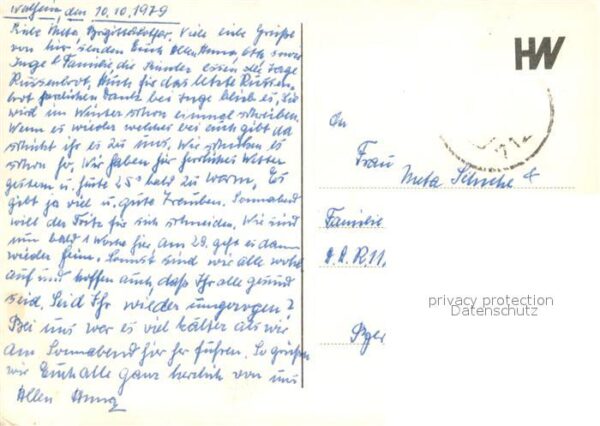 den 10.10.1979
Liebe Meta, Viele liebe Grüße
von hier senden Euch Allen Anna, Otto, sowie
Inge & Familie die Kinder essen alle Tage
Russenbrot. Auch für das letzte Russen-
brot herzlichen Dank bei Inge blieb es, Sie
wird im Winter schon einmal schreiben.
Wenn es wieder welches bei euch gibt da
schickt ihr es zu uns. Wir
schon so. Wir haben hier herrliches Wetter
gestern u. heute 25° bald zu warm. Es
gibt ja viel u. gute Trauben. Sonnabend
will der Fritz für sich schneiden. Wir sind
nun bald 1 Woche hier am 29. geht es dann
wieder heim. Sonst sind wir alle wohl
auf und hoffen auch, daß Ihr alle gesund
seid. Seid Ihr wieder umgezogen?
Bei uns war es viel kälter als wir
am Sonnabend hier her führen. So grüßen
wir Euch alle ganz herzlich von uns
Allen Anna
HW
An
Frau
Meta &
Familie
D.D.R. 11.
712
privacy protection
Datenschutz